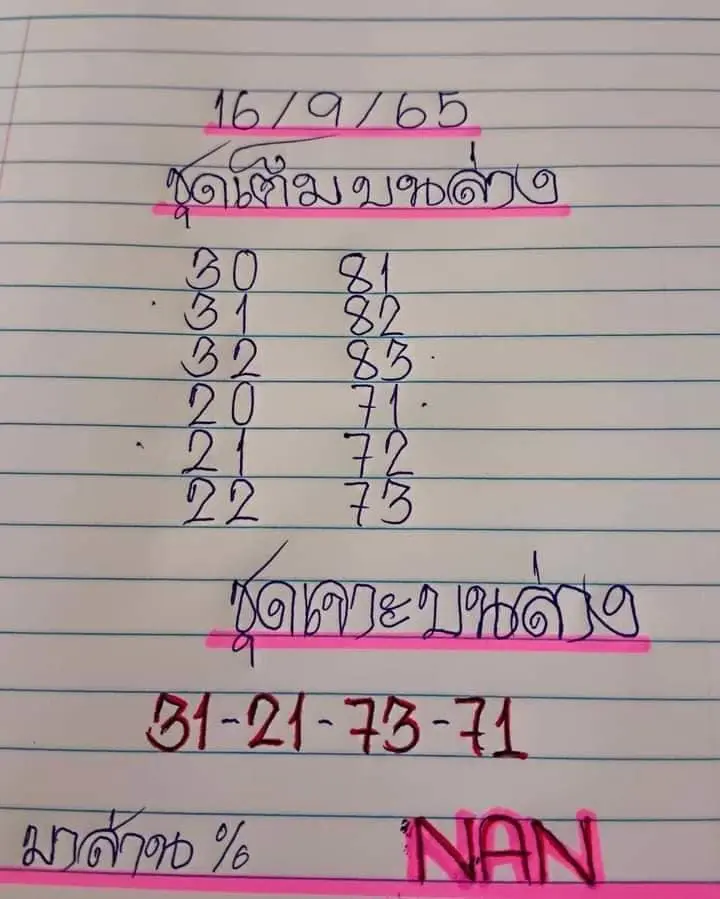 16/9/65
ชุดเต็มบนล่าง
30 81
31 82
32 83
20 71
21 72
22 73
ชุดเจาะบนล่าง
31-21-73-71
มาล้าน % NAN